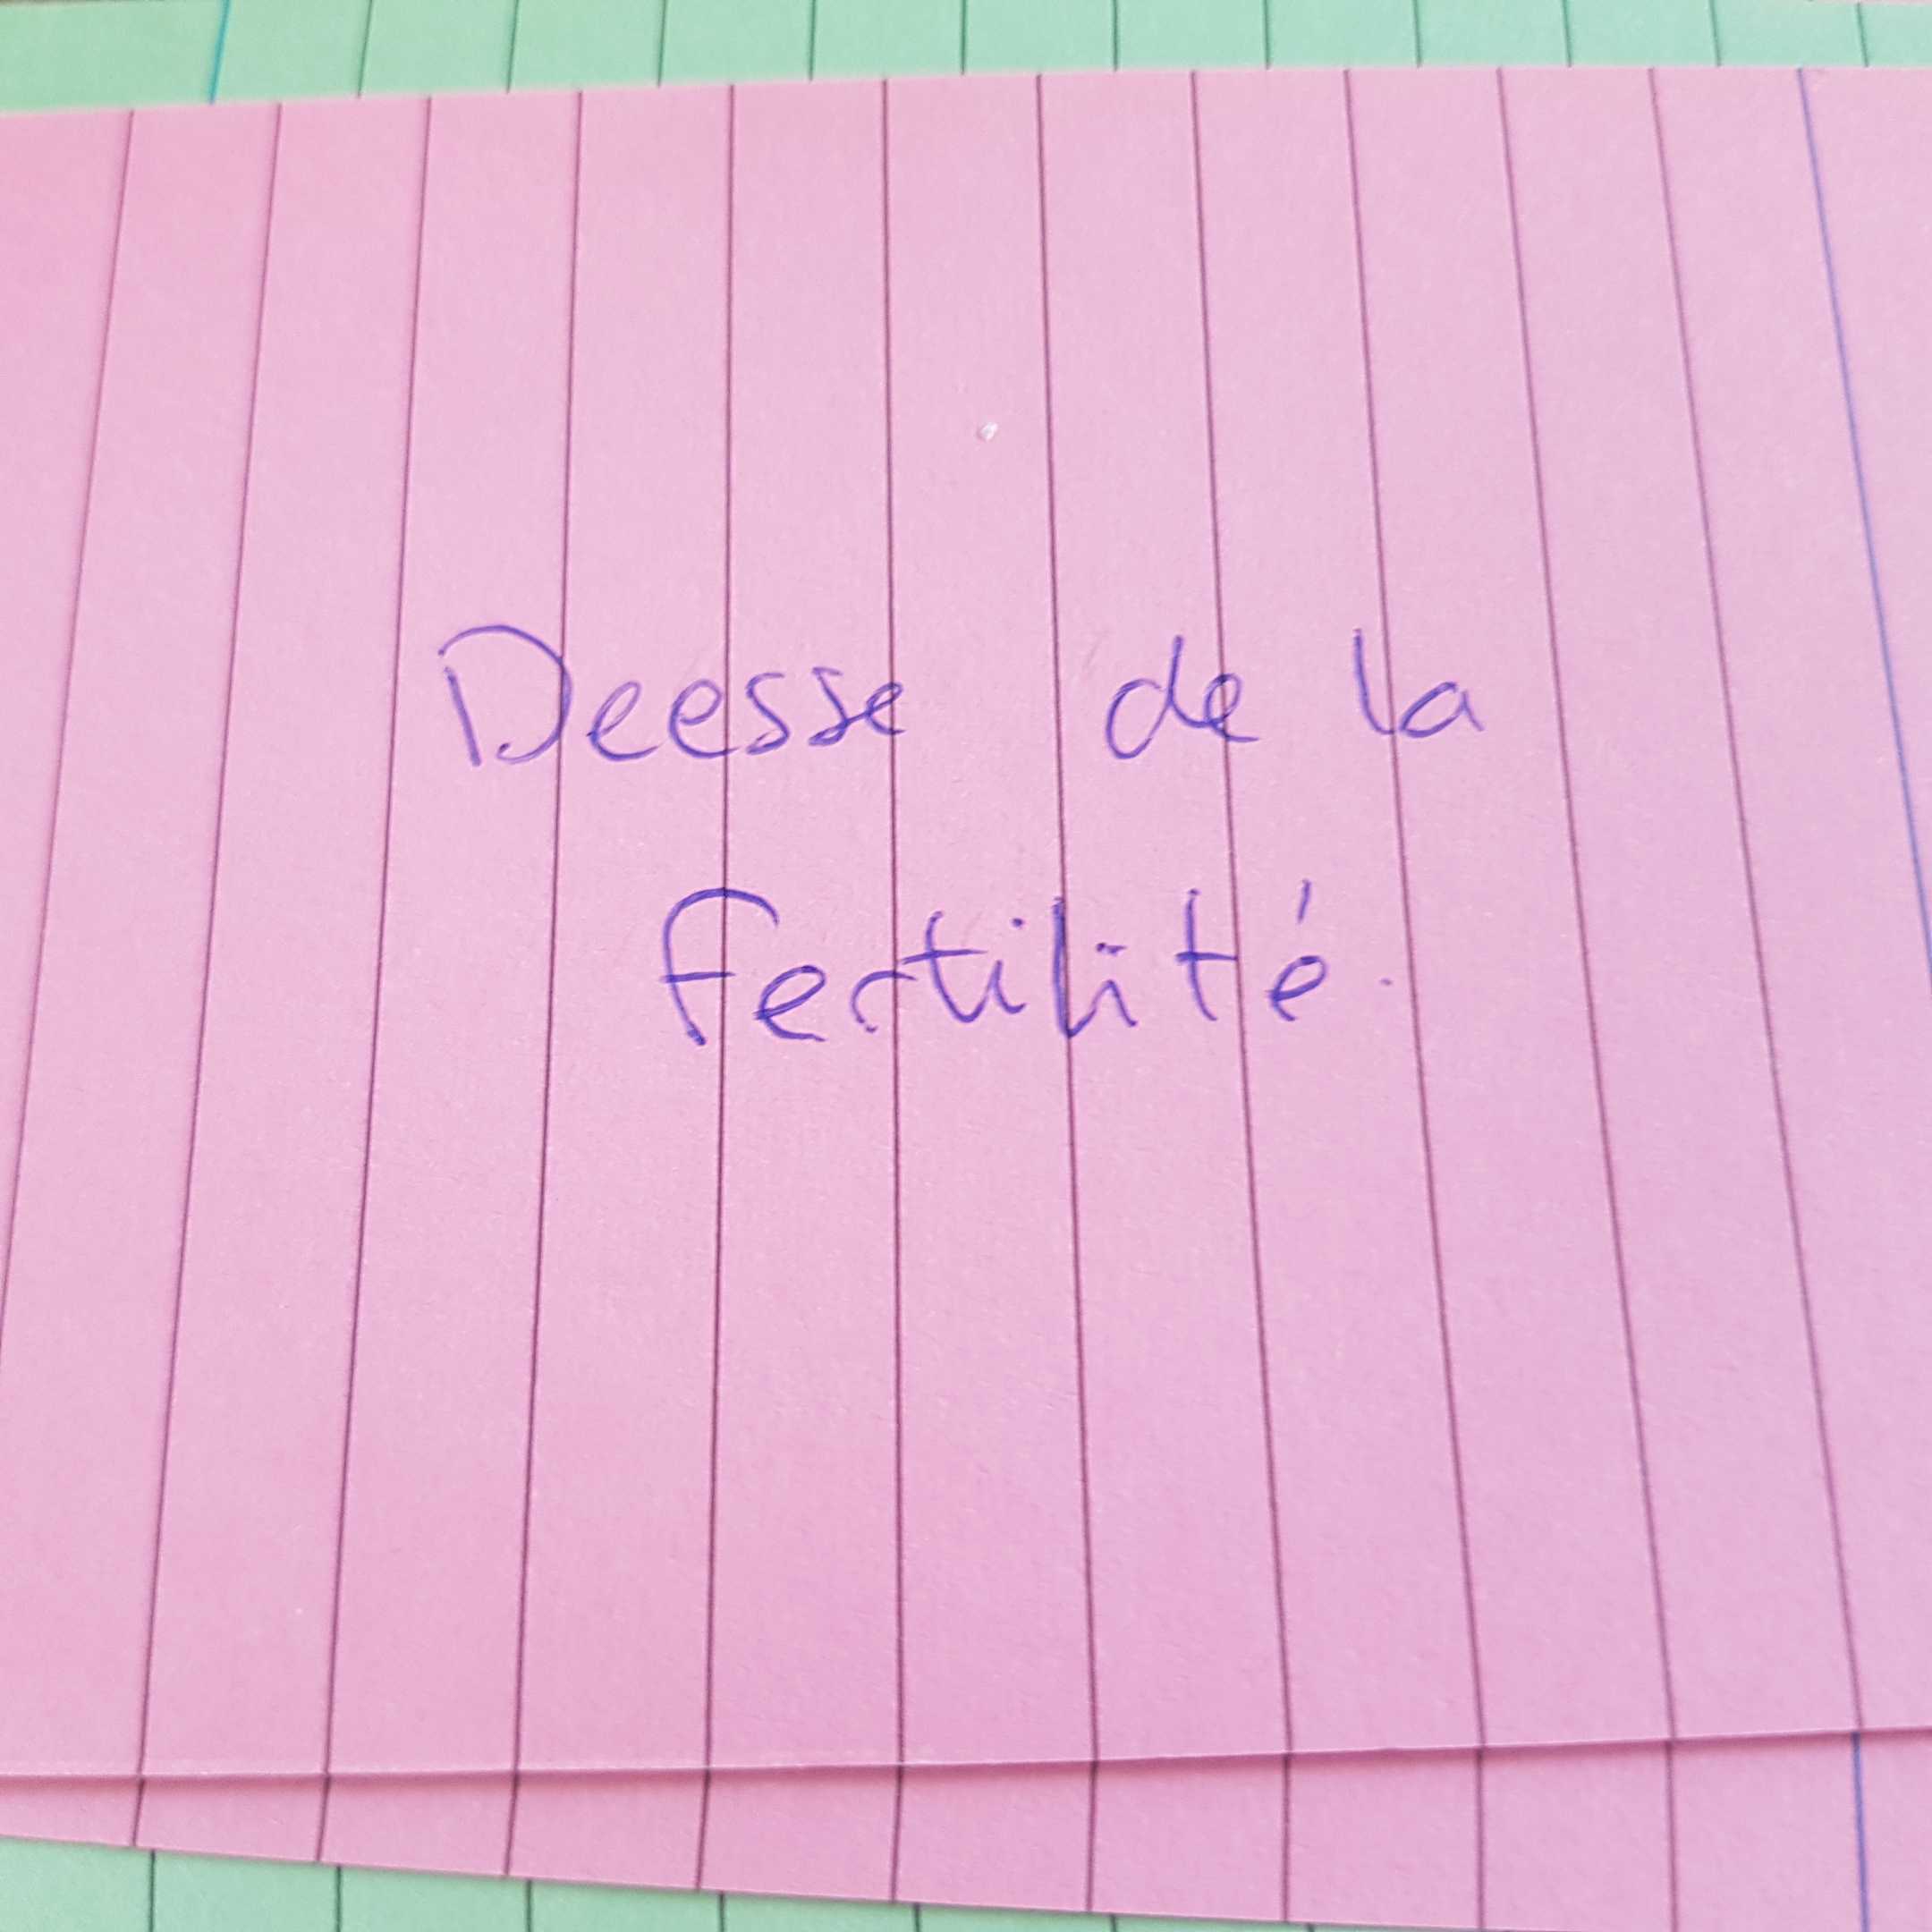 Deesse de la
fertilité.